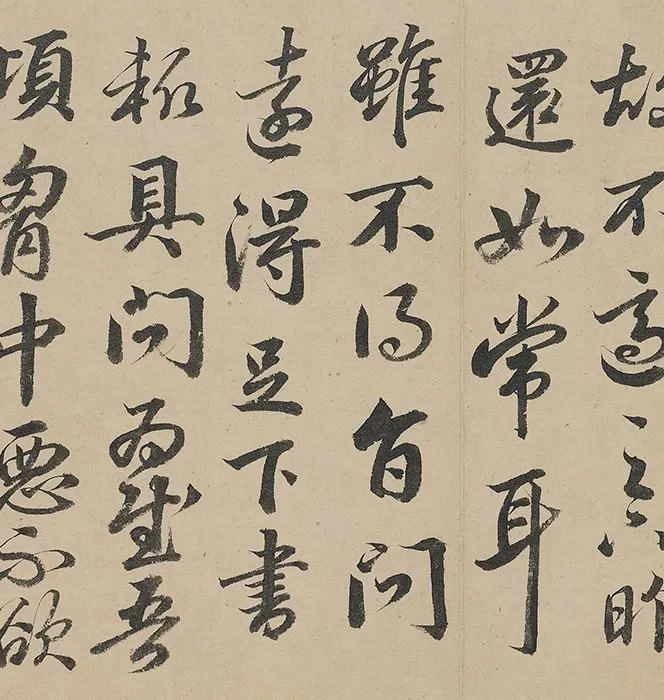 故不適昨
還如常耳
雖不得問
遠得足下書
具問為慰吾
頃胸中惡不欲